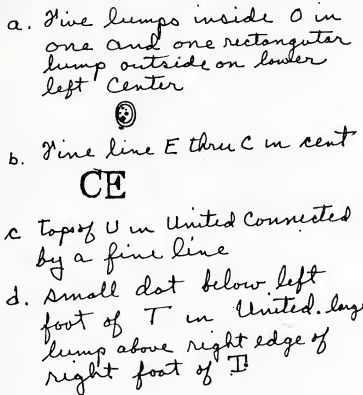 a. Five lumps inside O in
one and one rectangular
lump outside on lower
left center
b. Fine line E thru C in cent
CE
c Tops of U in United connected
by a fine line
d. small dot below left
foot of T in United. large
lump above right edge of
right foot of T